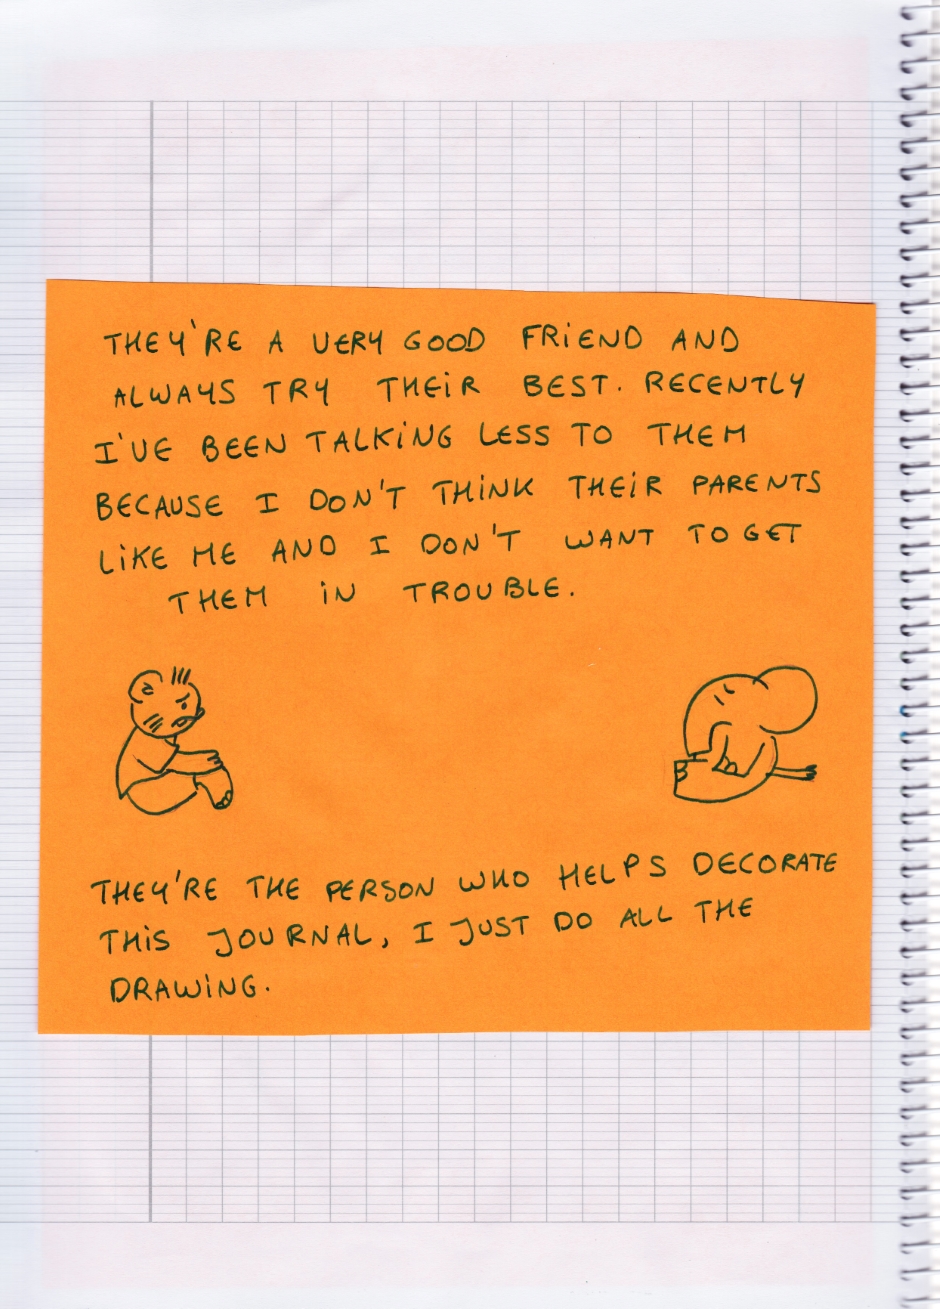 THEY'RE A VERY GOOD FRiEND AND
ALWAYS TRY THEiR BEST. RECENTLY
I'VE BEEN TALKiNG LESS TO THEM
BECAUSE I DON'T THiNK THEiR PARENTS
LiKE ME AND I DON'T WANT TO GET
THEM iN TROUBLE.
THEY'RE THE PERSON WHO HELPS DECORATE
THiS JOURNAL, I JUST DO ALL THE
DRAWiNG.